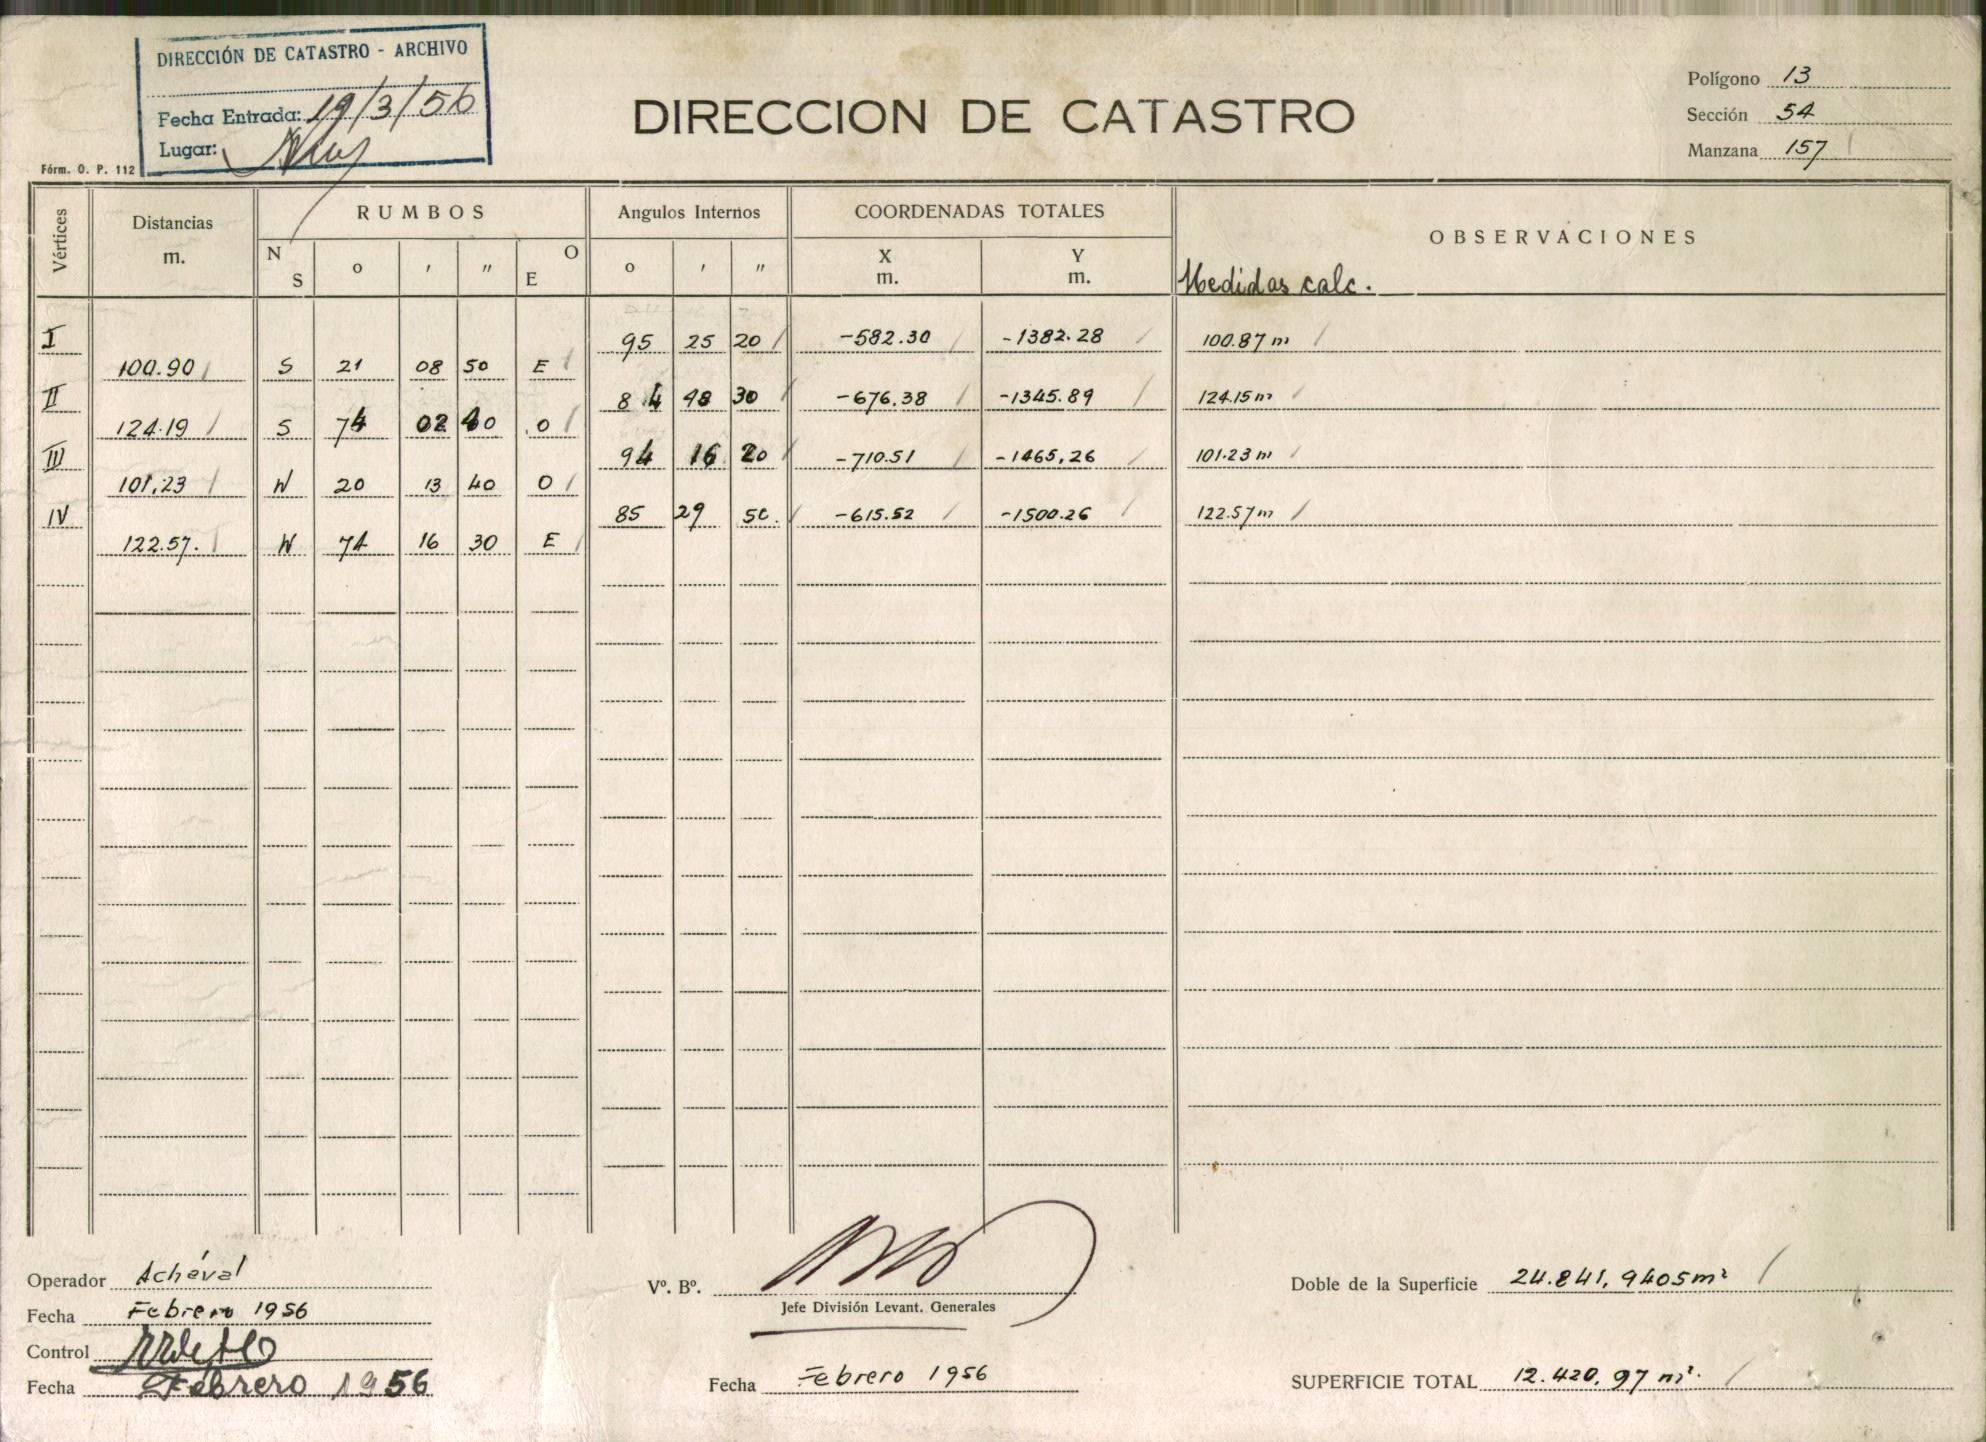 DIRECCIÓN DE CATASTRO - ARCHIVO
Fecha Entrada: 19/3/56
Lugar:
Fórm. O. P. 112
DIRECCION DE CATASTRO
Polígono 13
Sección 54
Manzana 157
Vértices
Distancias
m.
RUMBOS
N
S
o
'
"
O
E
Angulos Internos
o
'
"
COORDENADAS TOTALES
X
m.
Y
m.
OBSERVACIONES
Medidas calc.
I 95 25 20 -582.30 -1382.28 100.87 m
100.90 S 21 08 50 E
II 84 48 30 -676.38 -1345.89 124.15 m
124.19 S 74 02 40 O
III 94 16 20 -710.51 -1465,26 101.23 m
101,23 N 20 13 40 O
IV 85 29 50. -615.52 -1500.26 122.57 m
122.57. N 74 16 30 E
Operador Achával
Fecha Febrero 1956
Control
Fecha Febrero 1956
Vº. Bº.
Jefe División Levant. Generales
Fecha Febrero 1956
Doble de la Superficie 24.841,9405 m²
SUPERFICIE TOTAL 12.420,97 m².